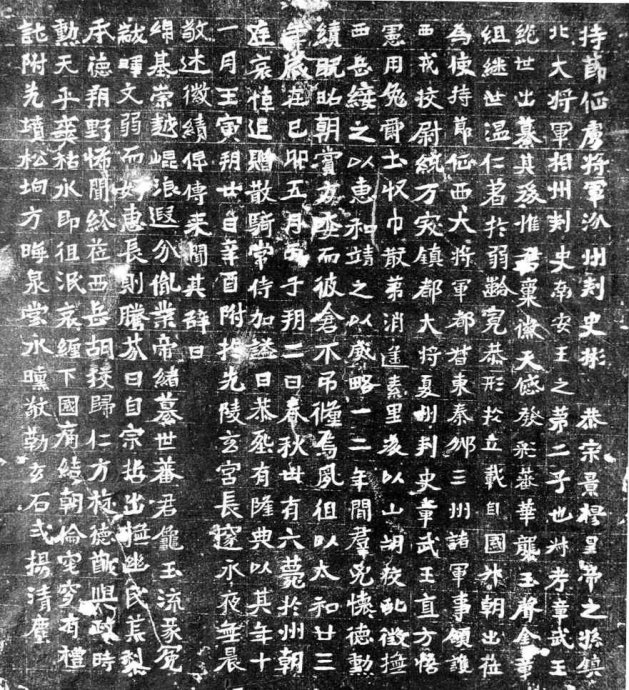 持節征虜將軍汾州刾史彬 恭宗景穆皇帝之孫鎮
北大將軍相州刾史南安王之第二子也叔考章武王
絕世出纂其後惟君稟徽天感發彩蕃華襲玉聲金章
組継世温仁著於弱齡寬恭形於立載自國升朝出莅
為使持節征西大將軍都督東秦邠三州諸軍事領護
西戎校尉統万突鎮都大將夏州刾史章武王直方悟
憲用勉爵土収巾散第消遥素里後以山胡校亂徵撫
西岳綏之以惠和靖之以威略一二年間羣兇懷德勳
績既昭朝賞方委而彼倉不弔殲焉夙徂以太和廿三
年歲在己卯五月丙子朔二日春秋卅有六薨於州朝
廷哀悼追贈散騎常侍加謚曰恭塟有隆典以其年十
一月壬寅朔廿日辛酉附於先陵玄宮長邃永夜無晨
敬述徽績俾傳来聞其辞曰
綿基崇越崐浪遐分胤業帝緒纂世蕃君龜玉流彖冕
黻暉文弱而好惠長則騰芬曰自宗哲出撫幽民蒸梨
承德朔野怖聞終莅西岳胡狡歸仁方旌德猷與政時
勳天乎爽祐永即徂泯哀纏下國痛結朝倫窀穸有禮
託附先墳松垧方晦泉堂永曛敬勒玄石式揚清塵